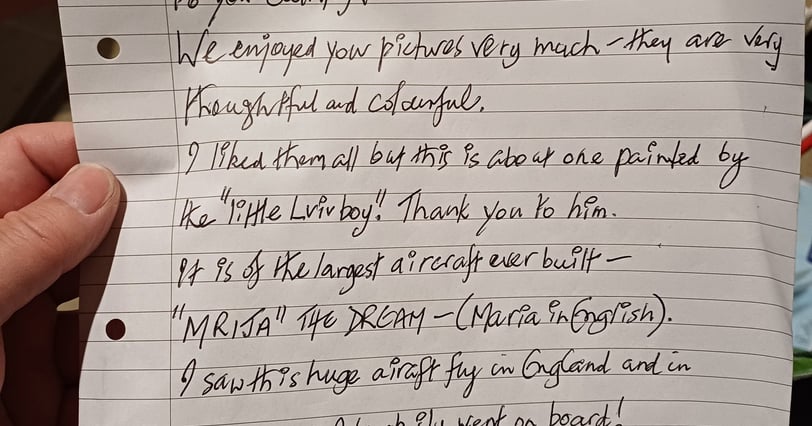 We enjoyed your pictures very much – they are very
thoughtful and colourful.
I liked them all but this is about one painted by
the "little Lviv boy". Thank you to him.
It is of the largest aircraft ever built –
"MRIJA" THE DREAM – (Maria in English).
I saw this huge aircaft fly in England and in
went on board!